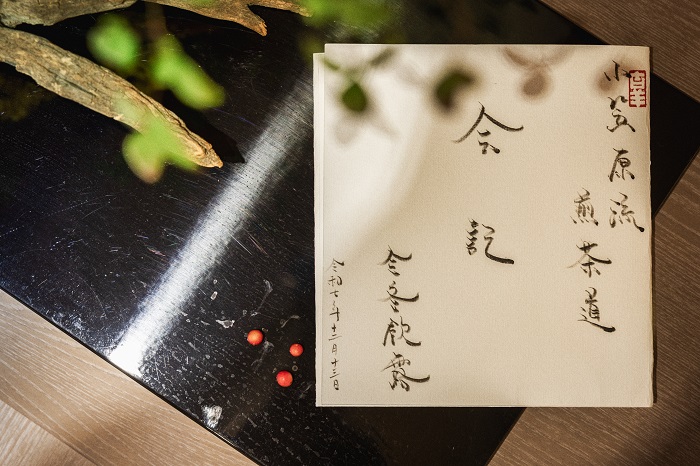 小笠原流
煎茶道
会記
冬飲露
令和七年十二月十三日